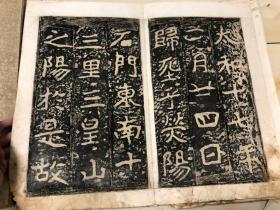 太和十七年
月廿四日
歸塟乎熒陽
石門東南十
三里三皇山
之陽於是故